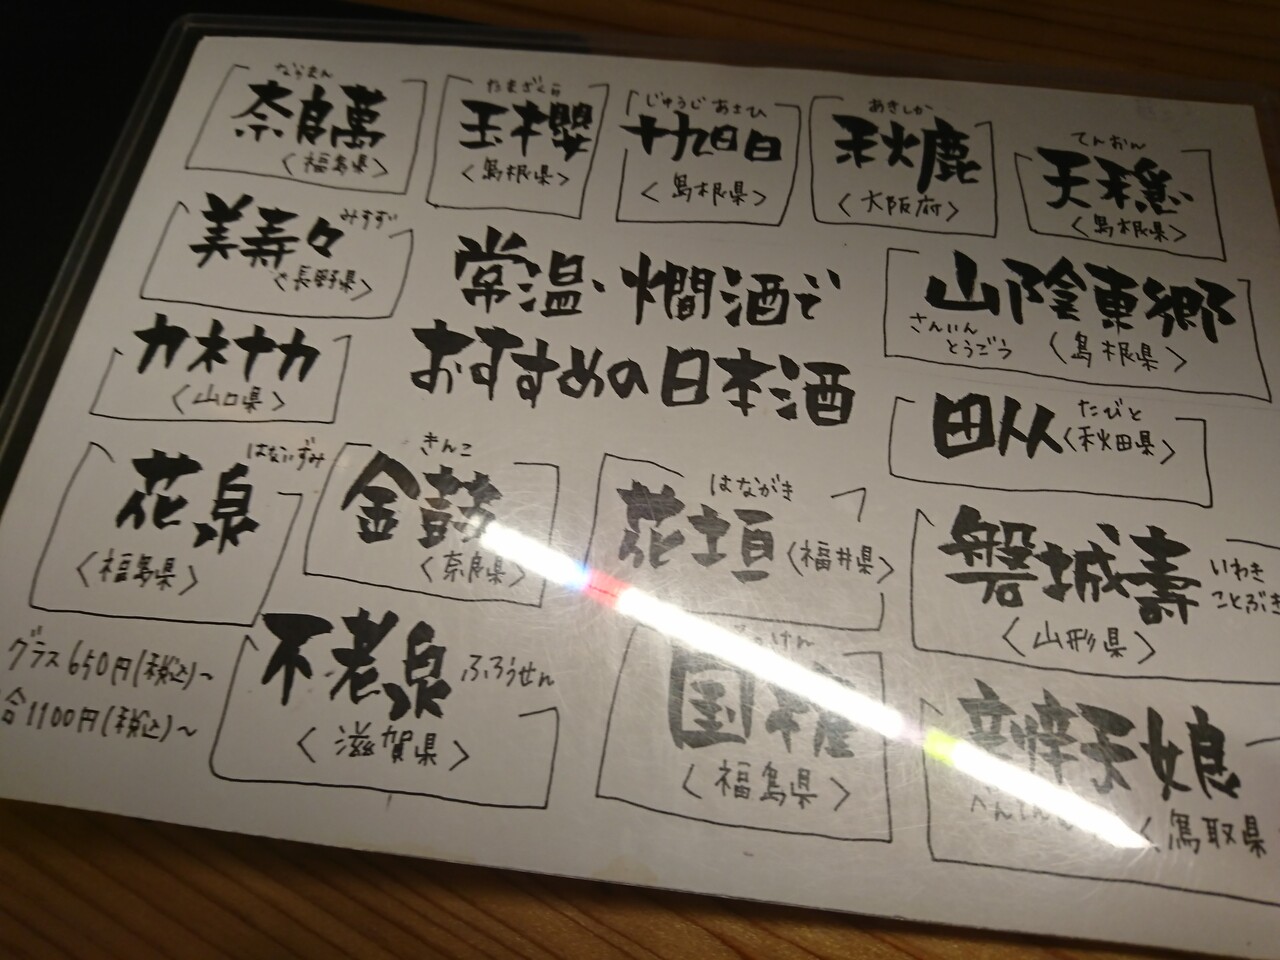 ならまん
奈良萬
〈福島県〉
たまざくら
玉櫻
〈島根県〉
じゅうじあさひ
十九旭日
〈島根県〉
あきしか
秋鹿
〈大阪府〉
てんおん
天穏
〈島根県〉
美寿々 みすず
〈長野県〉
常温・燗酒で
おすすめの日本酒
山陰東郷
さんいん
とうごう
〈島根県〉
カネナカ
〈山口県〉
田从 たびと
〈秋田県〉
はないずみ
花泉
〈福島県〉
きんこ
金鼓
〈奈良県〉
はながき
花垣
〈福井県〉
磐城壽
いわき
ことぶき
〈山形県〉
グラス650円(税込)~
合1100円(税込)~
不老泉 ふろうせん
〈滋賀県〉
国権
〈福島県〉
辨天娘
〈鳥取県